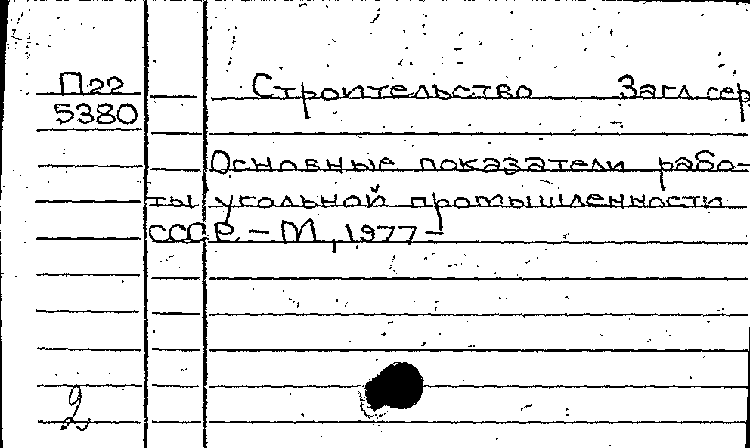 П22 Строительство Загл.сер
5380
Основные показатели рабо-
ты угольной промышленности
СССР. – М, 1977 –
2